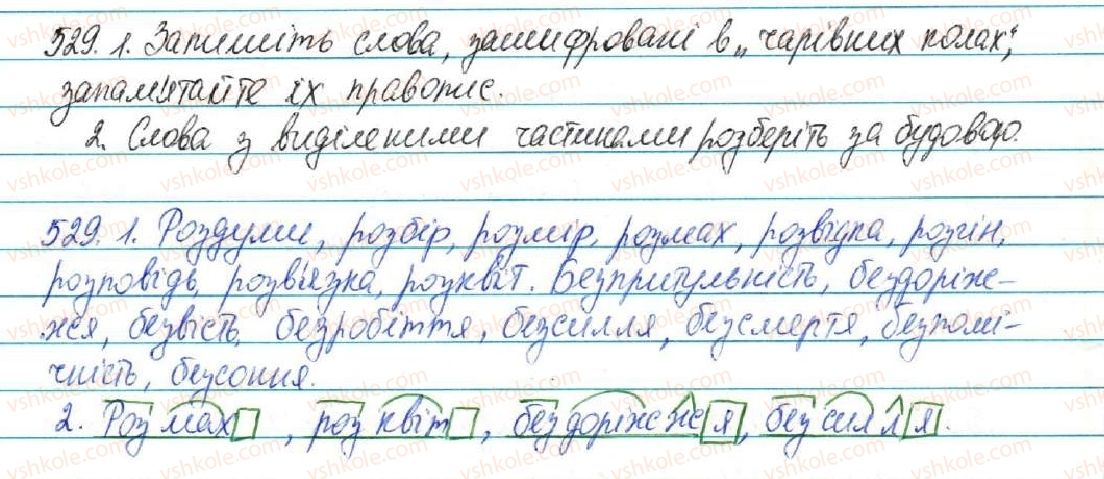 529. 1. Запишіть слова, зашифровані в „чарівних колах“,
запам'ятайте їх правопис.
2. Слова з виділеними частинами розберіть за будовою.
529. 1. Роздуми, розбір, розмір, розмах, розвідка, розгін,
розповідь, розв'язка, розквіт. Безпритульність, бездоріж-
жя, безвість, безробіття, безсилля, безсмертя, безпомі-
чність, безсоння.
2. Розмах, розквіт, бездоріжжя, безсилля.